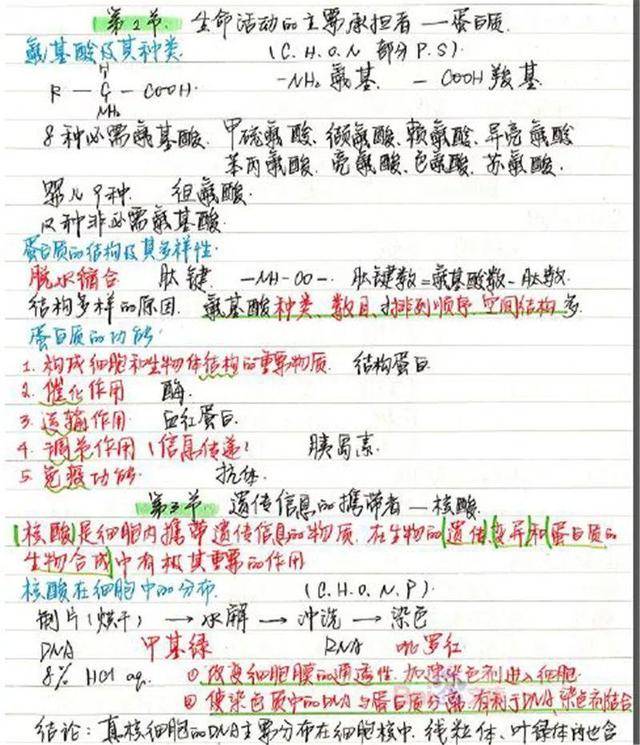 第2节 生命活动的主要承担者——蛋白质
氨基酸及其种类 (C.H.O.N 部分P.S)
H
R — C — COOH. -NH₂ 氨基. — COOH 羧基
NH₂
8种必需氨基酸. 甲硫氨酸、缬氨酸、赖氨酸、异亮氨酸
苯丙氨酸、亮氨酸、色氨酸、苏氨酸.
婴儿9种. 组氨酸.
12种非必需氨基酸.
蛋白质的结构及其多样性.
脱水缩合 肽键. -NH-CO-. 肽键数=氨基酸数-肽数.
结构多样的原因. 氨基酸种类、数目、排列顺序 空间结构
蛋白质的功能.
1. 构成细胞和生物体结构的重要物质. 结构蛋白
2. 催化作用 酶.
3. 运输作用. 血红蛋白.
4. 调节作用(信息传递) 胰岛素.
5. 免疫功能. 抗体.
第3节 遗传信息的携带者——核酸.
核酸是细胞内携带遗传信息的物质. 在生物的遗传,变异和蛋白质的
生物合成中有极其重要的作用
核酸在细胞中的分布. (C.H.O.N.P)
制片(烘干) → 水解 → 冲洗 → 染色
DNA 甲基绿 RNA 吡罗红
8% HCl aq. ① 改变细胞膜的通透性. 加速染色剂进入细胞
② 使染色质中的DNA与蛋白质分离, 有利于DNA染色剂结合
结论: 真核细胞的DNA主要分布在细胞核中. 线粒体、叶绿体内也含